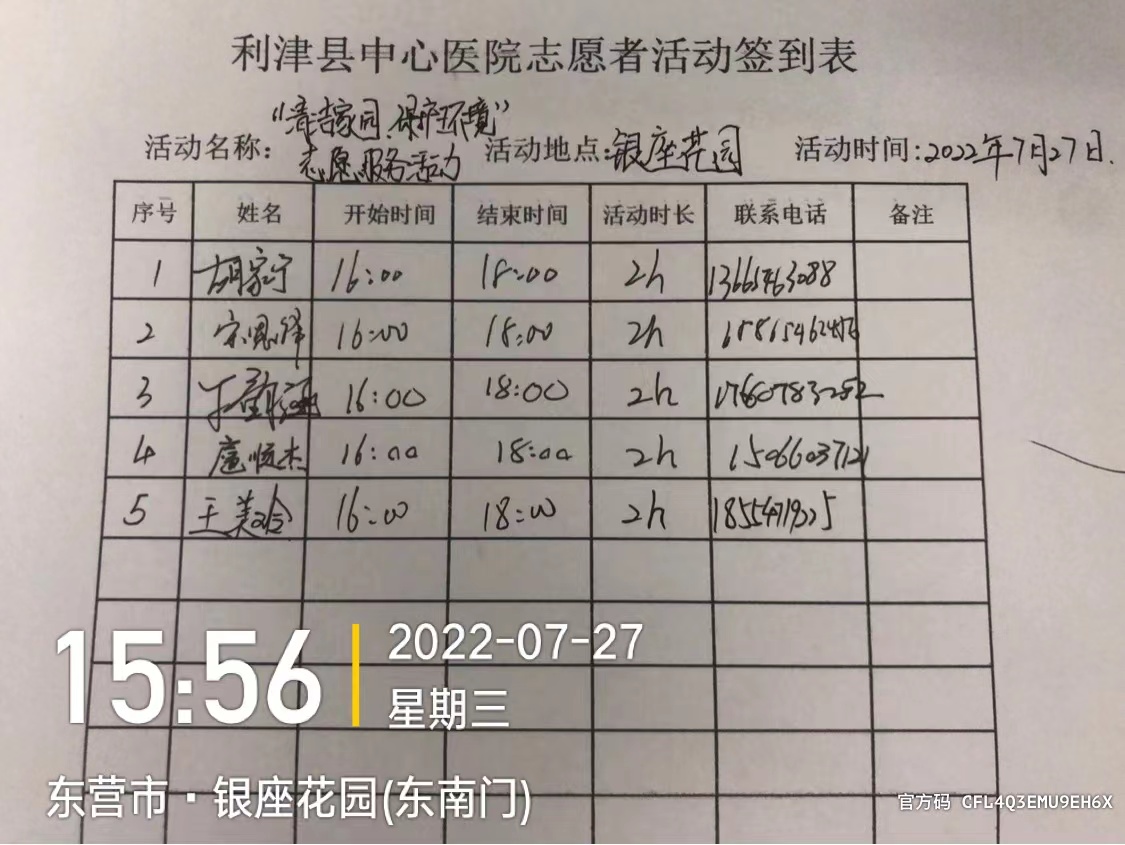 利津县中心医院志愿者活动签到表
活动名称:“清洁家园、保护环境”志愿服务活动 活动地点:银座花园 活动时间:2022年7月27日.
序号 姓名 开始时间 结束时间 活动时长 联系电话 备注
1 胡家宁 16:00 18:00 2h
2 宋恩泽 16:00 18:00 2h
3 16:00 18:00 2h 17660783282
4 扈顺杰 16:00 18:00 2h 15066037121
5 王美玲 16:00 18:00 2h
15:56
2022-07-27
星期三
东营市·银座花园(东南门)
官方码 CFL4Q3EMU9EH6X